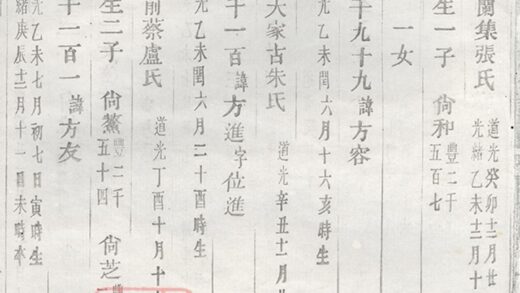 蘭集張氏
道光癸卯十二月廿
光緒乙未十二月十
生一子 尚和
豐二千
五百七
一女
千九十九諱方容
光乙未閏六月十六亥時生
大家古朱氏 道光辛丑十一月
十一百諱方進字位進
光乙未閏六月二十酉時生
前蔡盧氏 道光丁酉十月十
生二子 尚鰲
豐二千
五十四
尚芝
十一百一諱方友
光乙未七月初七日寅時生
緒庚辰十二月十一日未時卒